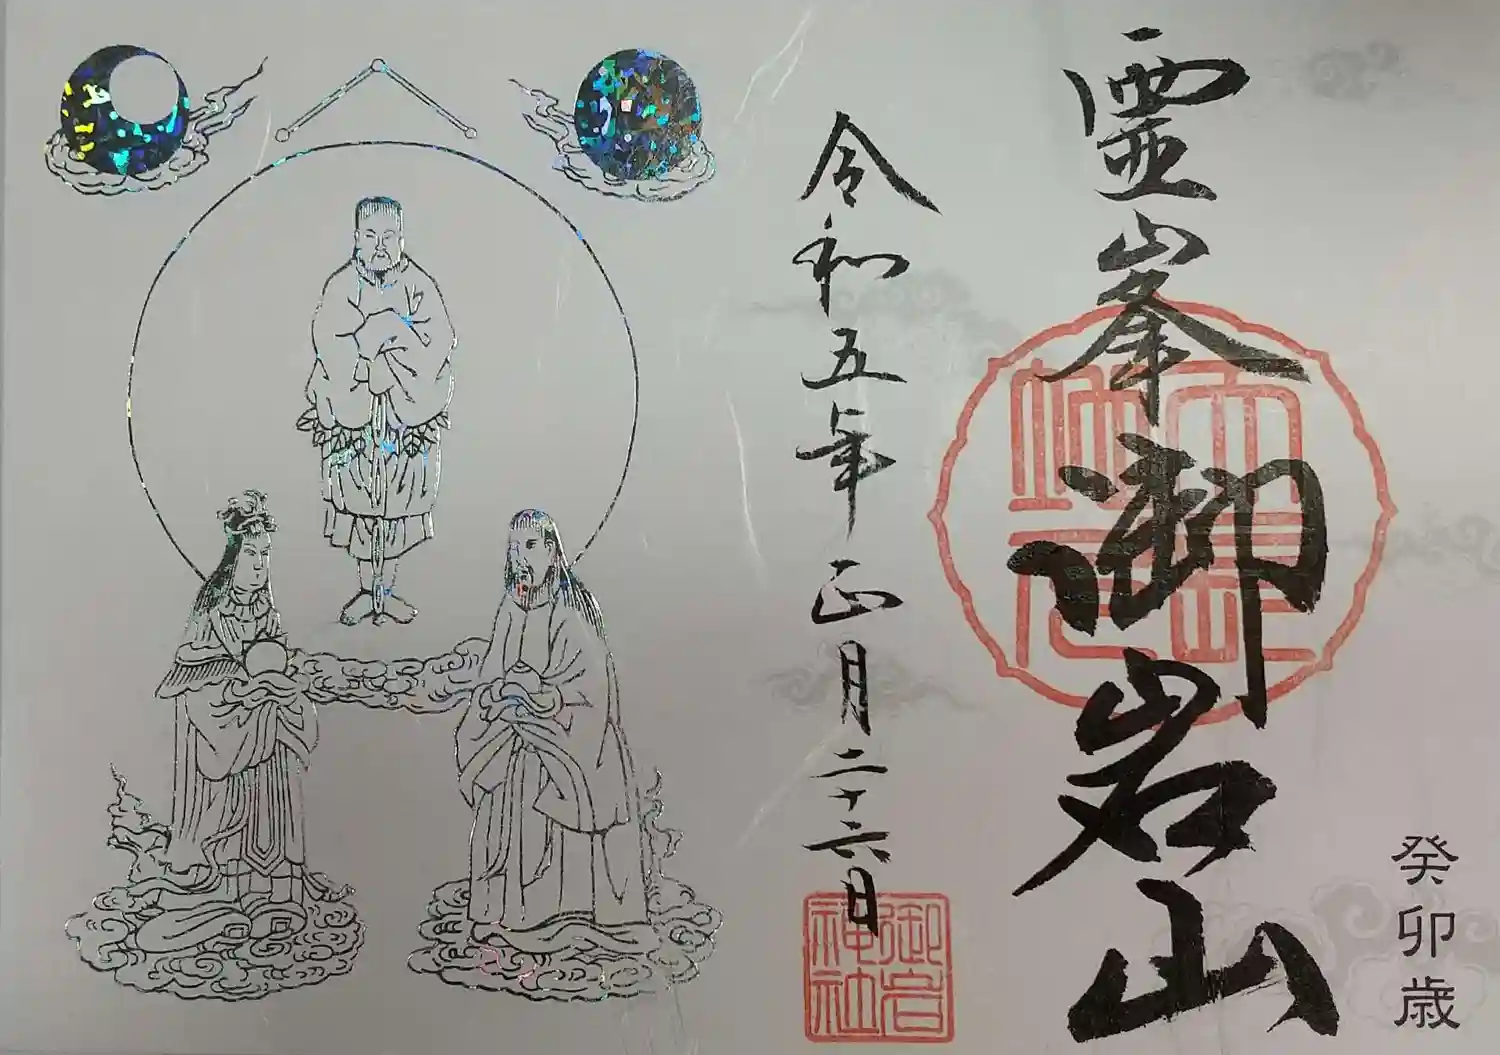 癸卯歳
霊峯御岩山
令和五年正月二十六日
御岩神社